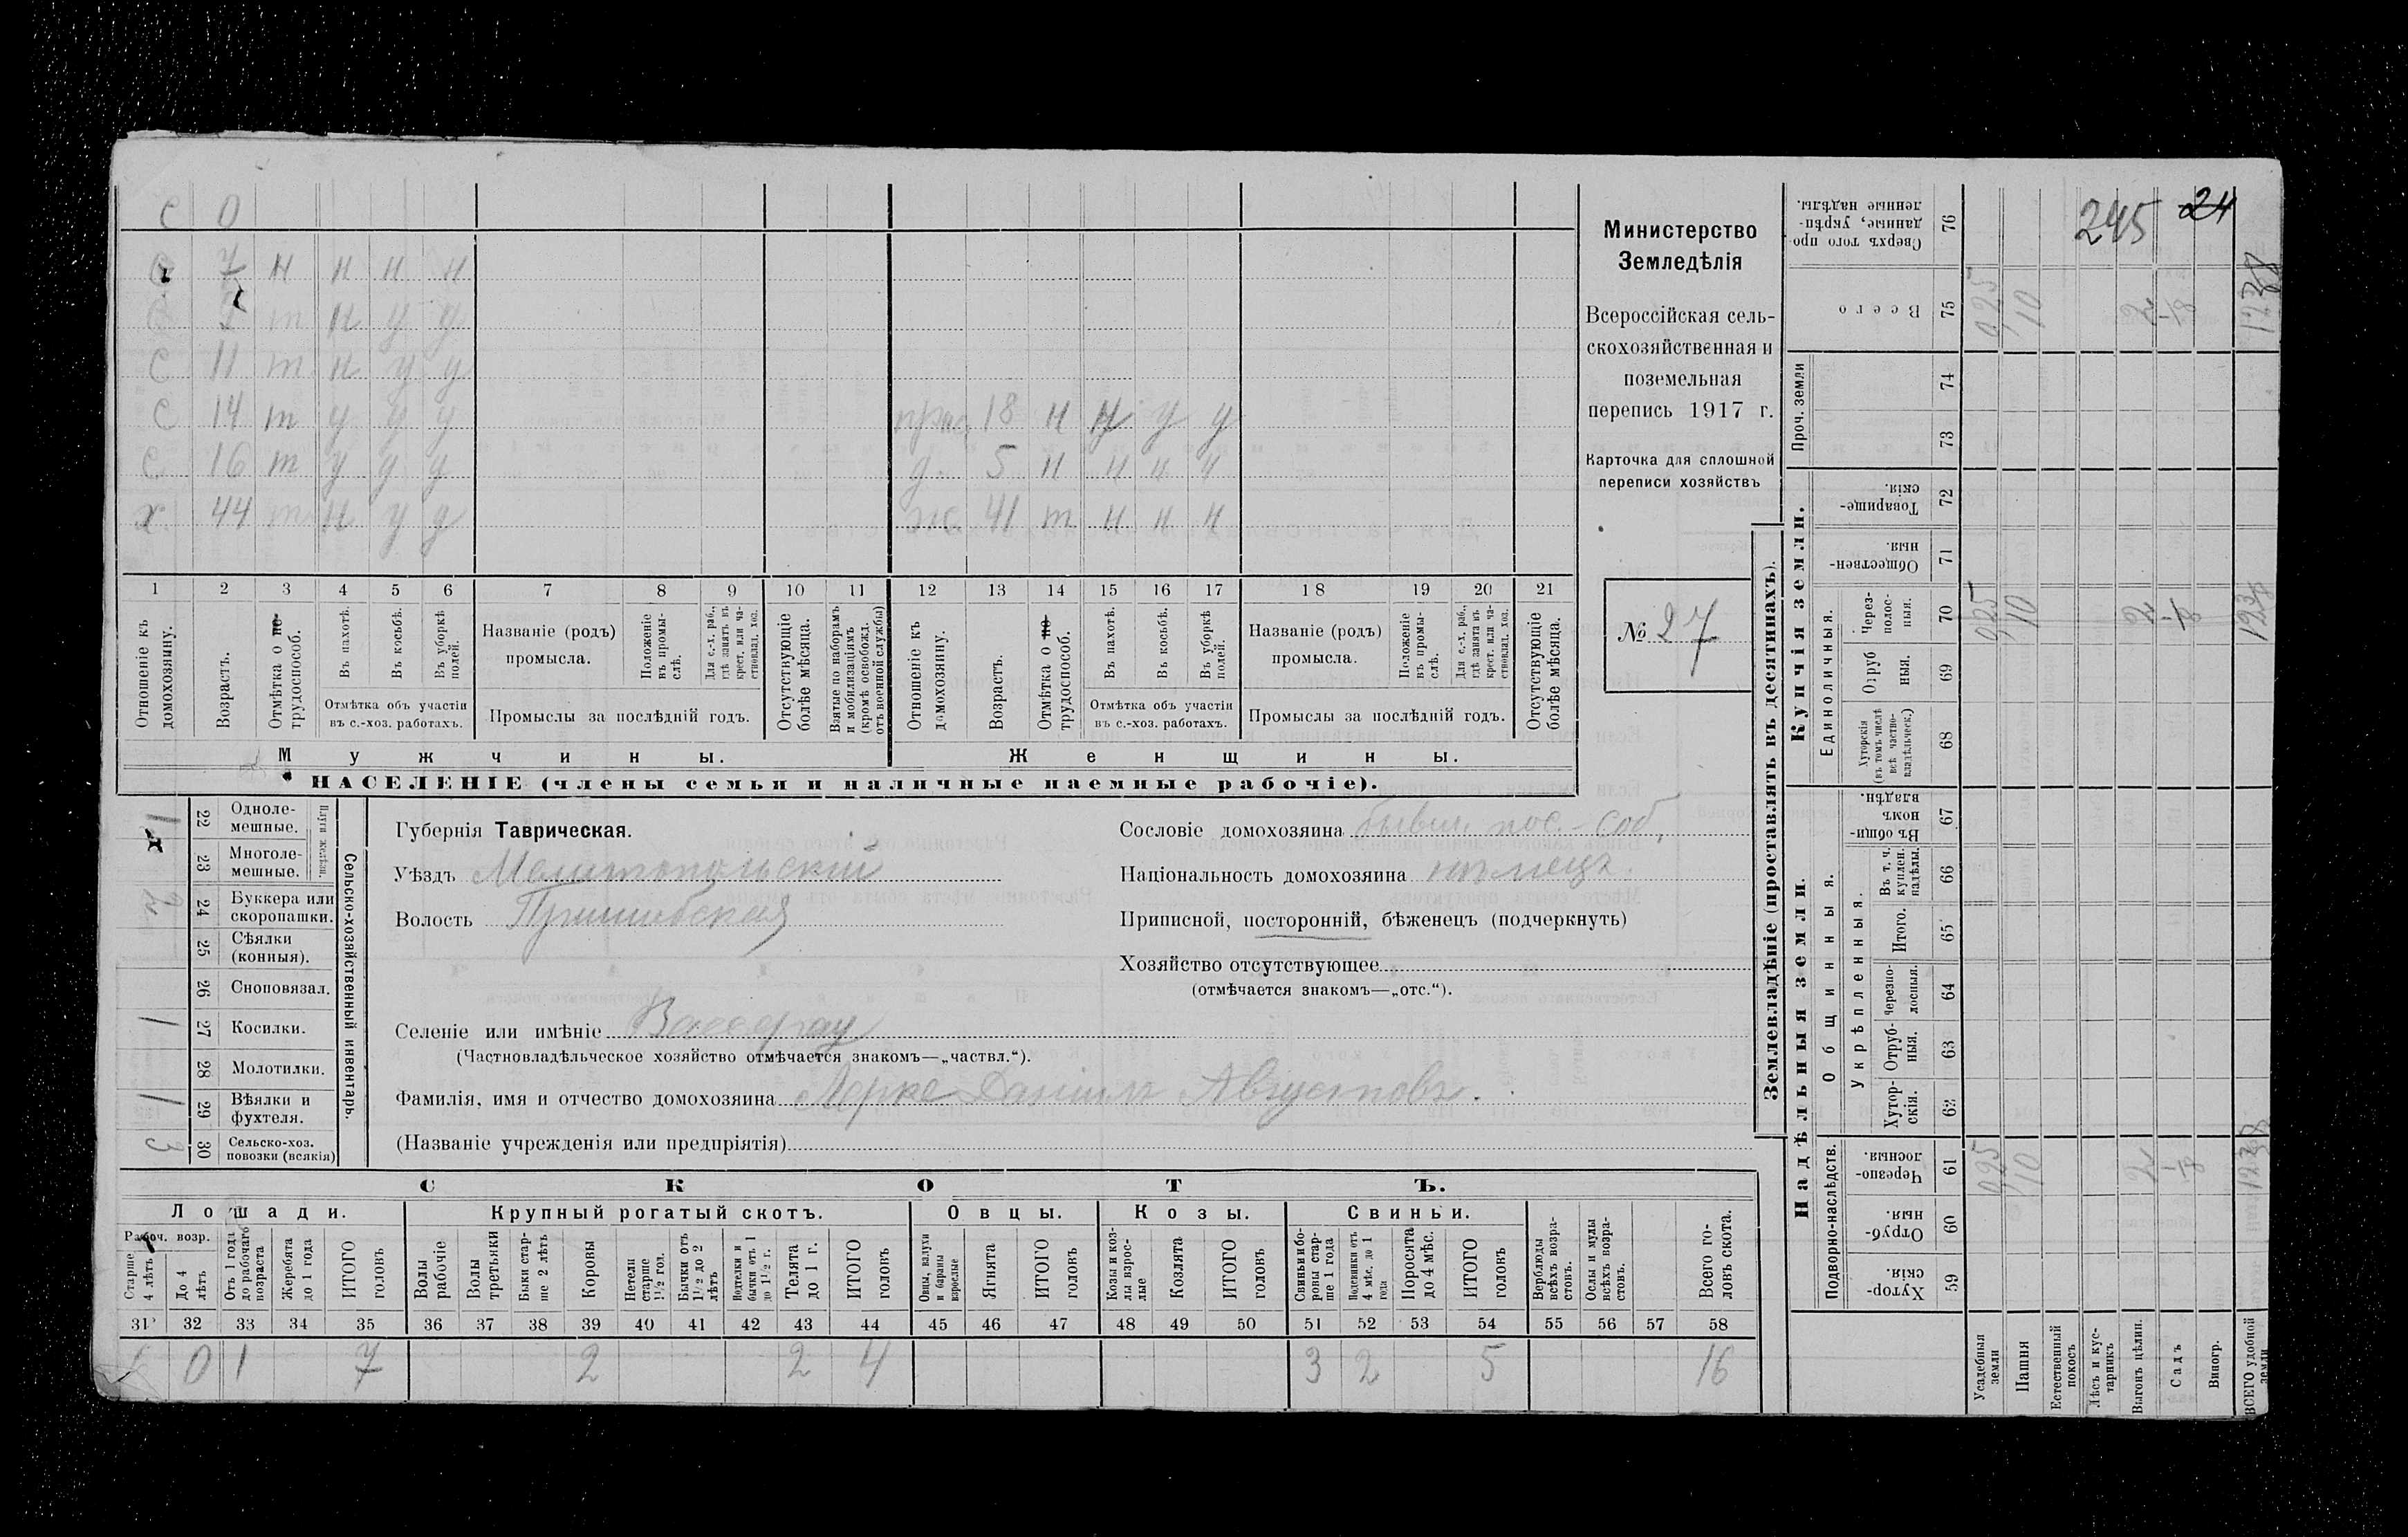 С 0
С 7 н н н н
С н у у
С 11 т н у у
С 14 т у у у
С 16 т у у у
х. 44 т н у у
18 н н у у
д. 5 н н н н
ж 41 т н н н
1 2 3 4 5 6 7 8 9 10 11 12 13 14 15 16 17 18 19 20 21
Отношеніе къ домохозяину.
Возрастъ.
Отмѣтка о не трудоспособ.
Въ пахотѣ.
Въ косьбѣ.
Въ уборкѣ полей.
Отмѣтка объ участіи въ с.-хоз. работахъ.
Названіе (родъ) промысла.
Положеніе въ промыслѣ.
Для с.-х. раб., гдѣ занятъ въ крест. или частновлад. хоз.
Промыслы за послѣдній годъ.
Отсутствующіе болѣе мѣсяца.
Взятые по наборамъ и мобилизаціямъ (кромѣ освобожд. отъ военной службы)
Отношеніе къ домохозяину.
Возрастъ.
Отмѣтка о не трудоспособ.
Въ пахотѣ.
Въ косьбѣ.
Въ уборкѣ полей.
Отмѣтка объ участіи въ с.-хоз. работахъ.
Названіе (родъ) промысла.
Положеніе въ промыслѣ.
Для с.-х. раб., гдѣ занята въ крест. или частновлад. хоз.
Промыслы за послѣдній годъ.
Отсутствующіе болѣе мѣсяца.
Мужчины.
Женщины.
НАСЕЛЕНІЕ (члены семьи и наличные наемные рабочіе).
Министерство
Земледѣлія
Всероссійская сель-
скохозяйственная и
поземельная
перепись 1917 г.
Карточка для сплошной
переписи хозяйствъ
№ 27
Сельско-хозяйственный инвентарь.
Плуги желѣзн.
1 22 Одноле-мешные.
23 Многоле-мешные.
2 24 Буккера или скоропашки.
25 Сѣялки (конныя).
26 Сноповязал.
1 27 Косилки.
28 Молотилки.
1 29 Вѣялки и фухтеля.
3 30 Сельско-хоз. повозки (всякія)
Губернія Таврическая.
Уѣздъ Мелитопольскій
Волость Пришибская
Сословіе домохозяина бывш. пос.-соб.
Національность домохозяина нѣмецъ.
Приписной, посторонній, бѣженецъ (подчеркнуть)
Хозяйство отсутствующее
(отмѣчается знакомъ—„отс.“).
Селеніе или имѣніе Вассерау
(Частновладѣльческое хозяйство отмѣчается знакомъ—„частвл.“).
Фамилія, имя и отчество домохозяина Лорке Даніилъ Августовъ.
(Названіе учрежденія или предпріятія)
СКОТЪ.
Лошади. Крупный рогатый скотъ. Овцы. Козы. Свиньи.
Рабоч. возр.
Старше 4 лѣтъ
До 4 лѣтъ
Отъ 1 года до рабочаго возраста
Жеребята до 1 года
ИТОГО головъ
Волы рабочіе
Волы третьяки
Быки старше 2 лѣтъ
Коровы
Нетели старше 1½ год.
Бычки отъ 1½ до 2 лѣтъ
Подтелки и бычки отъ 1 до 1½ г.
Телята до 1 г.
ИТОГО головъ
Овцы, валухи и бараны взрослые
Ягнята
ИТОГО головъ
Козы и козлы взрослые
Козлята
ИТОГО головъ
Свиньи боровы старше 1 года
Подсвинки отъ 4 мѣс. до 1 года
Поросята до 4 мѣс.
ИТОГО головъ
Верблюды всѣхъ возрастовъ.
Ослы и мулы всѣхъ возрастовъ.
Всего головъ скота.
31 32 33 34 35 36 37 38 39 40 41 42 43 44 45 46 47 48 49 50 51 52 53 54 55 56 57 58
0 1 7 2 2 4 3 2 5 16
Землевладѣніе (проставлять въ десятинахъ).
245 24
76 Сверхъ того проданные, укрѣпленные надѣлы.
75 Всего 925 10 2
Проч. земли
74
73
Купчія земли.
72 Товарищескія.
71 Общественныя.
Единоличныя.
70 Черезполосныя. 925 10 2
69 Отрубныя.
68 Хуторскія (въ томъ числѣ всѣ частновладѣльческ.)
Надѣльныя земли.
Общинныя.
67 Въ общинномъ владѣн.
Укрѣпленныя.
66 Въ т. ч. куплен. надѣлы.
65 Итого.
64 Черезполосныя.
63 Отрубныя.
62 Хуторскія.
Подворно-наслѣдств.
61 Черезполосныя. 925 10 2
60 Отрубныя.
59 Хуторскія.
Усадебныя земли
Пашня
Естественный покосъ
Лѣсъ и кустарникъ
Выгонъ цѣлин.
Садъ
Виногр.
ВСЕГО удобной земли